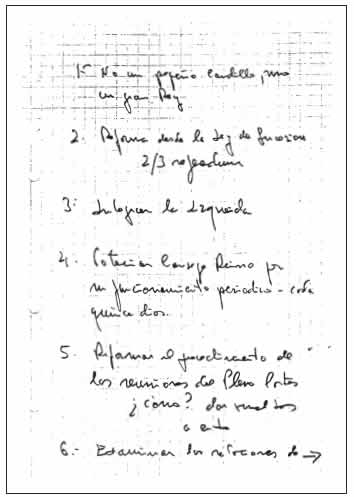 1º No un pequeño Caudillo, sino
un gran Rey
2. Reforma desde la Ley de Sucesión
2/3
3: Integrar la izquierda
4. Potenciar Consejo Reino por
su funcionamiento periodico - cada
quince dias.
5. Reformar el procedimiento de
las reuniones del Pleno Cortes
¿cómo? dos vueltas
6.- Examinar las relaciones de →